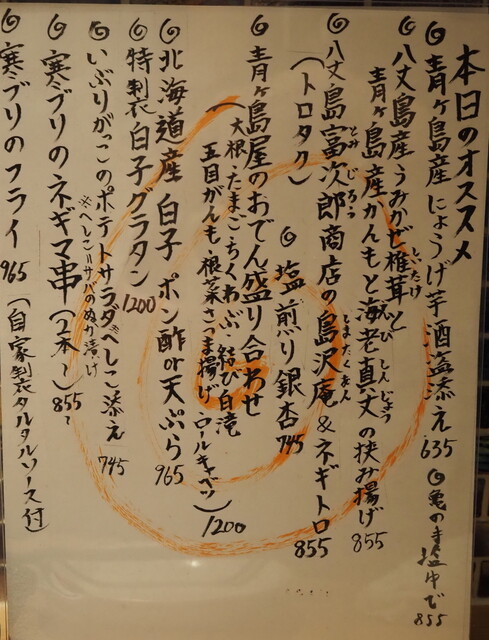 本日のオススメ
青ヶ島産 にょうげ芋 酒盗添え 635
亀の手塩ゆで 855
八丈島産うみかぜ椎茸と
しいたけ
青ヶ島産かんもと海老真丈の挟み揚げ 855
えび しんじょう
八丈島富次郎商店の島沢庵&ネギトロ 855
とみ じろう しまたくあん
(トロタク)
塩煎り銀杏 745
青ヶ島屋のおでん盛り合わせ
(大根・たまご・ちくわぶ・結び白滝
五目がんも・根菜さつま揚げ・ロールキャベツ) 1200
北海道産 白子 ポン酢or天ぷら 965
特製 白子グラタン 1200
いぶりがっこのポテトサラダ※へしこ添え 745
※へしこ=サバのぬか漬け
寒ブリのネギマ串 (2本〜) 855
寒ブリのフライ 965 (自家製タルタルソース付)